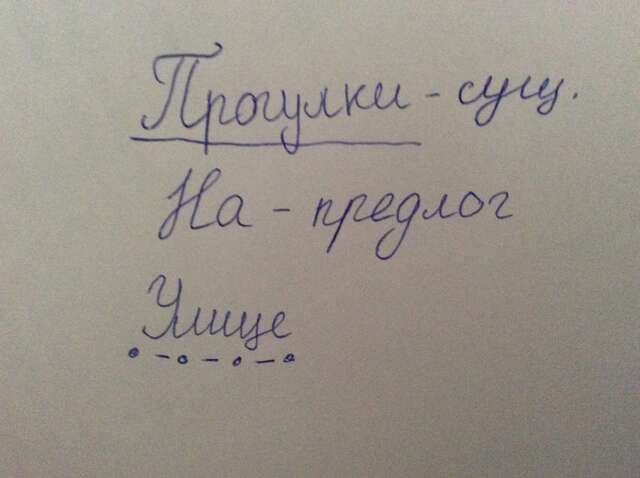 Прогулки - сущ.
На - предлог
Улице